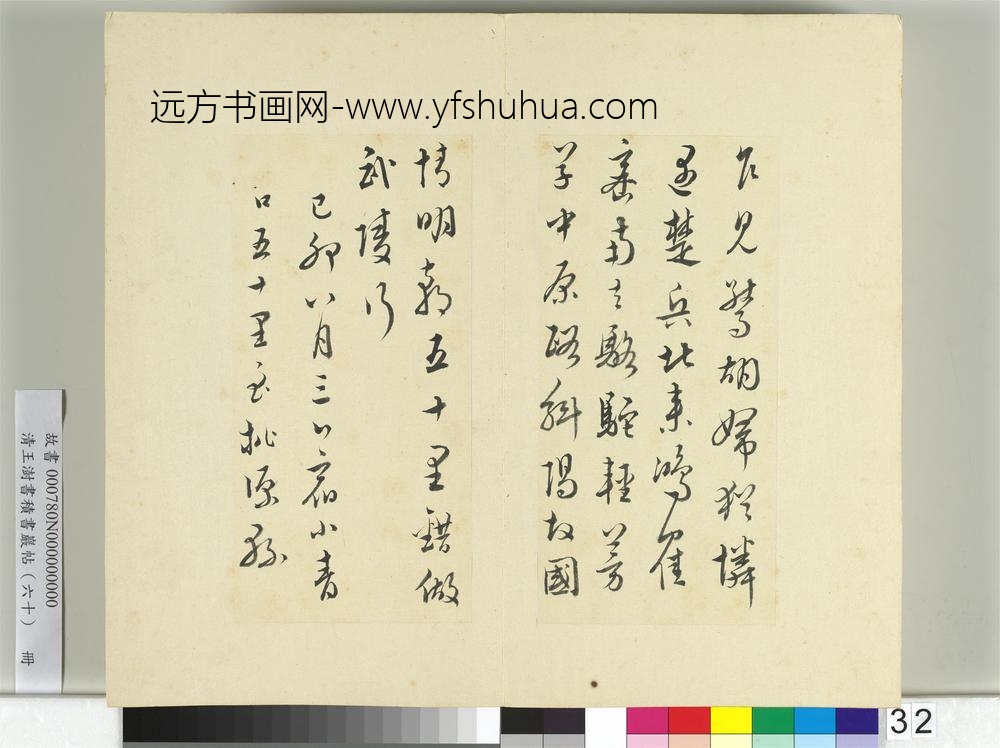 远方书画网-www.yfshuhua.com
乍見驚胡婦猶憐
遇楚兵北来鴻雁
密南去駱駝輕芳
草中原路斜陽故國
情明朝五十里錯做
武陵行
己卯八月三日宿小青
口五十里至桃源縣
故書 000780N000000000
清王澍書積書巖帖(六十) 冊
32